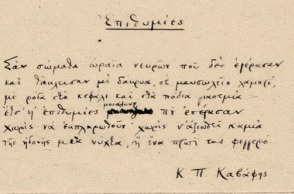 Ἐπιθυμίες
Σὰν σώματα ὡραῖα νεκρῶν ποὺ δὲν ἐγέρασαν
καὶ τἄκλεισαν, μὲ δάκρυα, σὲ μαυσωλεῖο λαμπρό,
μὲ ρόδα στὸ κεφάλι καὶ στὰ πόδια γιασεμιὰ —
ἔτσ' ἡ ἐπιθυμίες μοιάζουν ποὺ ἐπέρασαν
χωρὶς νὰ ἐκπληρωθοῦν· χωρὶς ν' ἀξιωθεῖ καμιὰ
τῆς ἡδονῆς μιὰ νύχτα, ἢ ἕνα πρωΐ της φεγγερό.
Κ. Π. Καβάφης